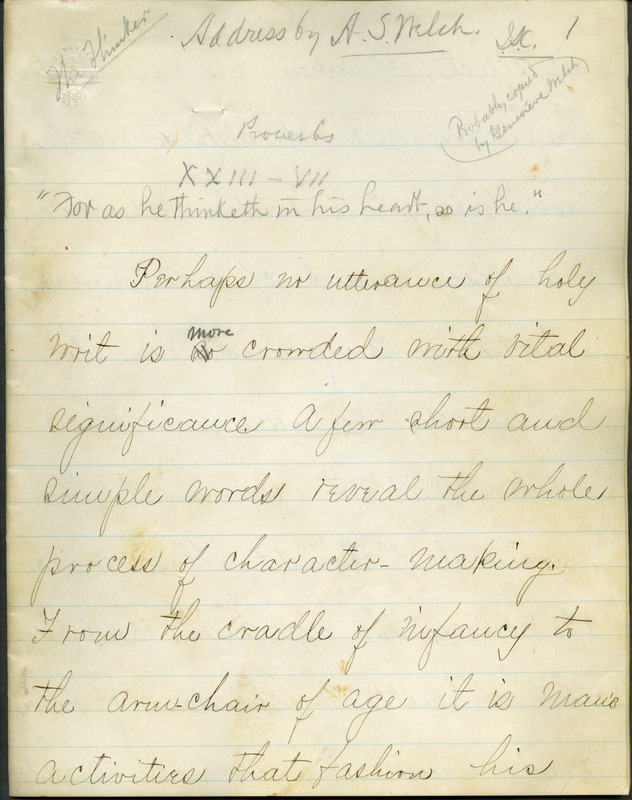 The Thinker
Address by A. S. Welch.
I.K. 1
(Probably copied
by Genevieve Welch)
Proverbs
XXIII - VII
"For as he thinketh in his heart, so is he."
Perhaps no utterance of holy
writ is more crowded with vital
significance. A few short and
simple words reveal the whole
process of character-making.
From the cradle of infancy to
the arm-chair of age it is man's
activities that fashion his